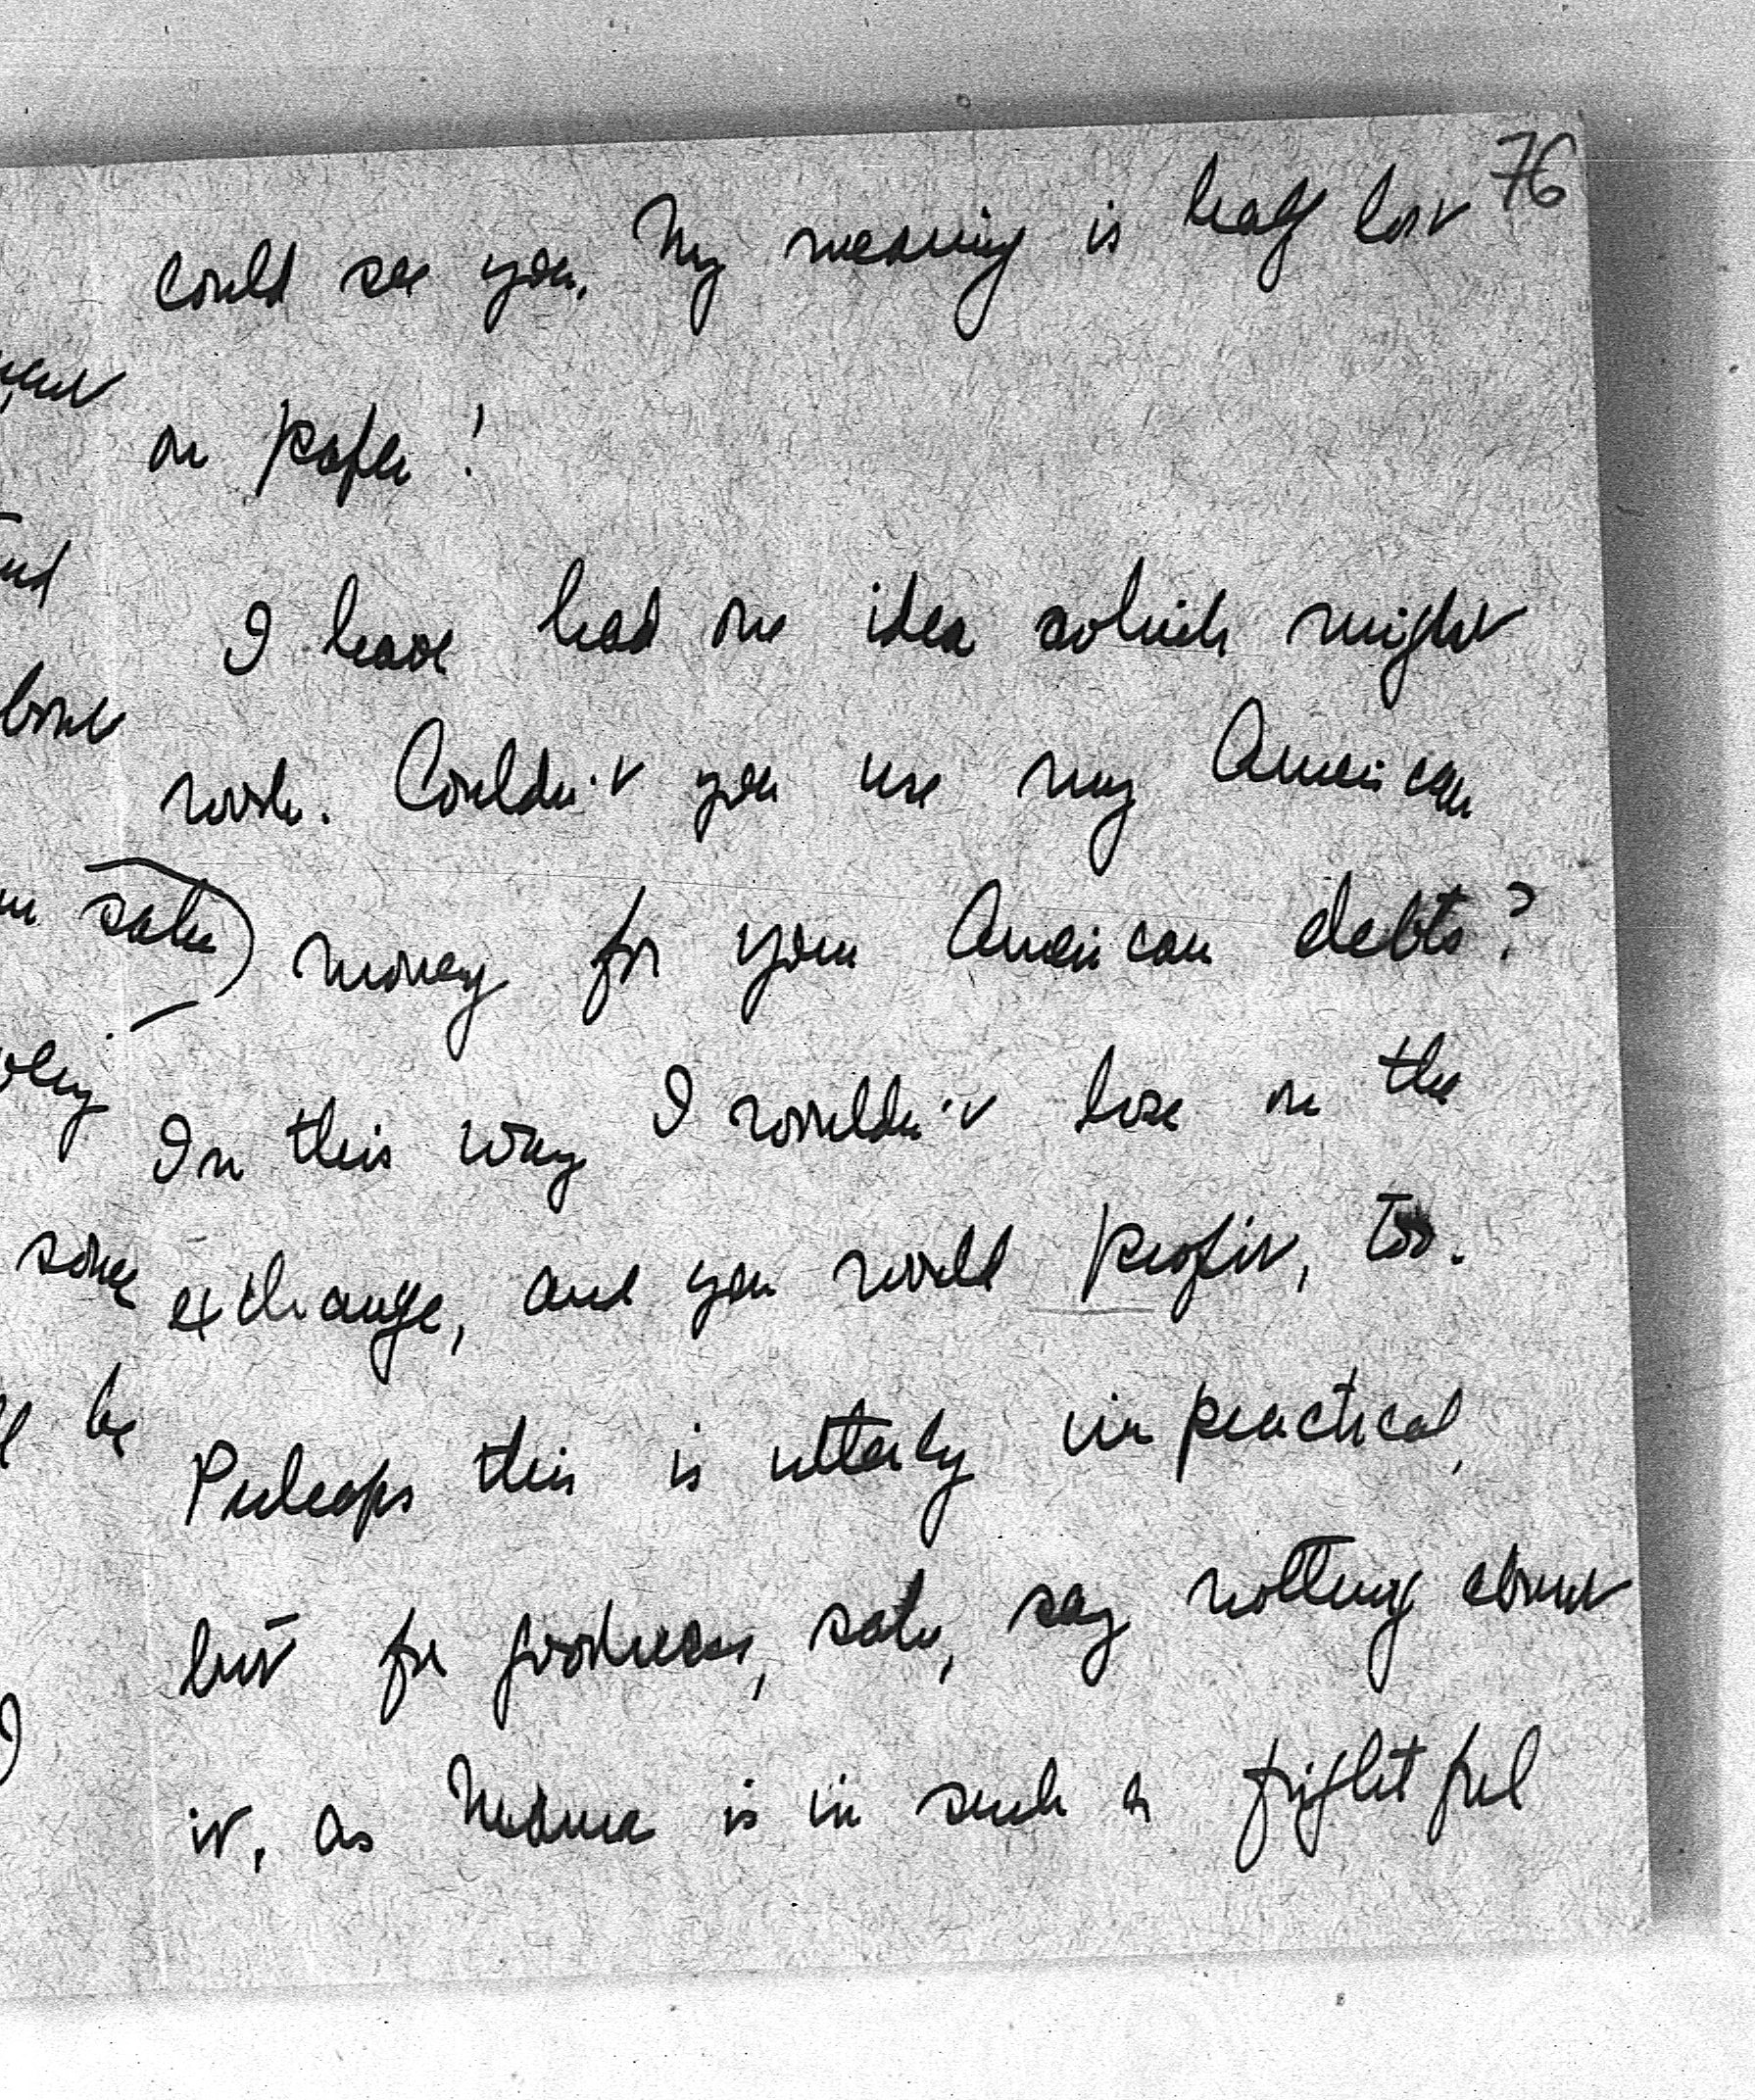 76
could see you. My meaning is half lost
on paper!
I have had one idea which might
work. Couldn't you use my American
money for your American debts?
In this way I wouldn't lose on the
exchange, and you would profit, too.
Perhaps this is utterly impractical,
but for goodness, sake, say nothing about
it, as Mama is in such a frightful
sake)
some
be